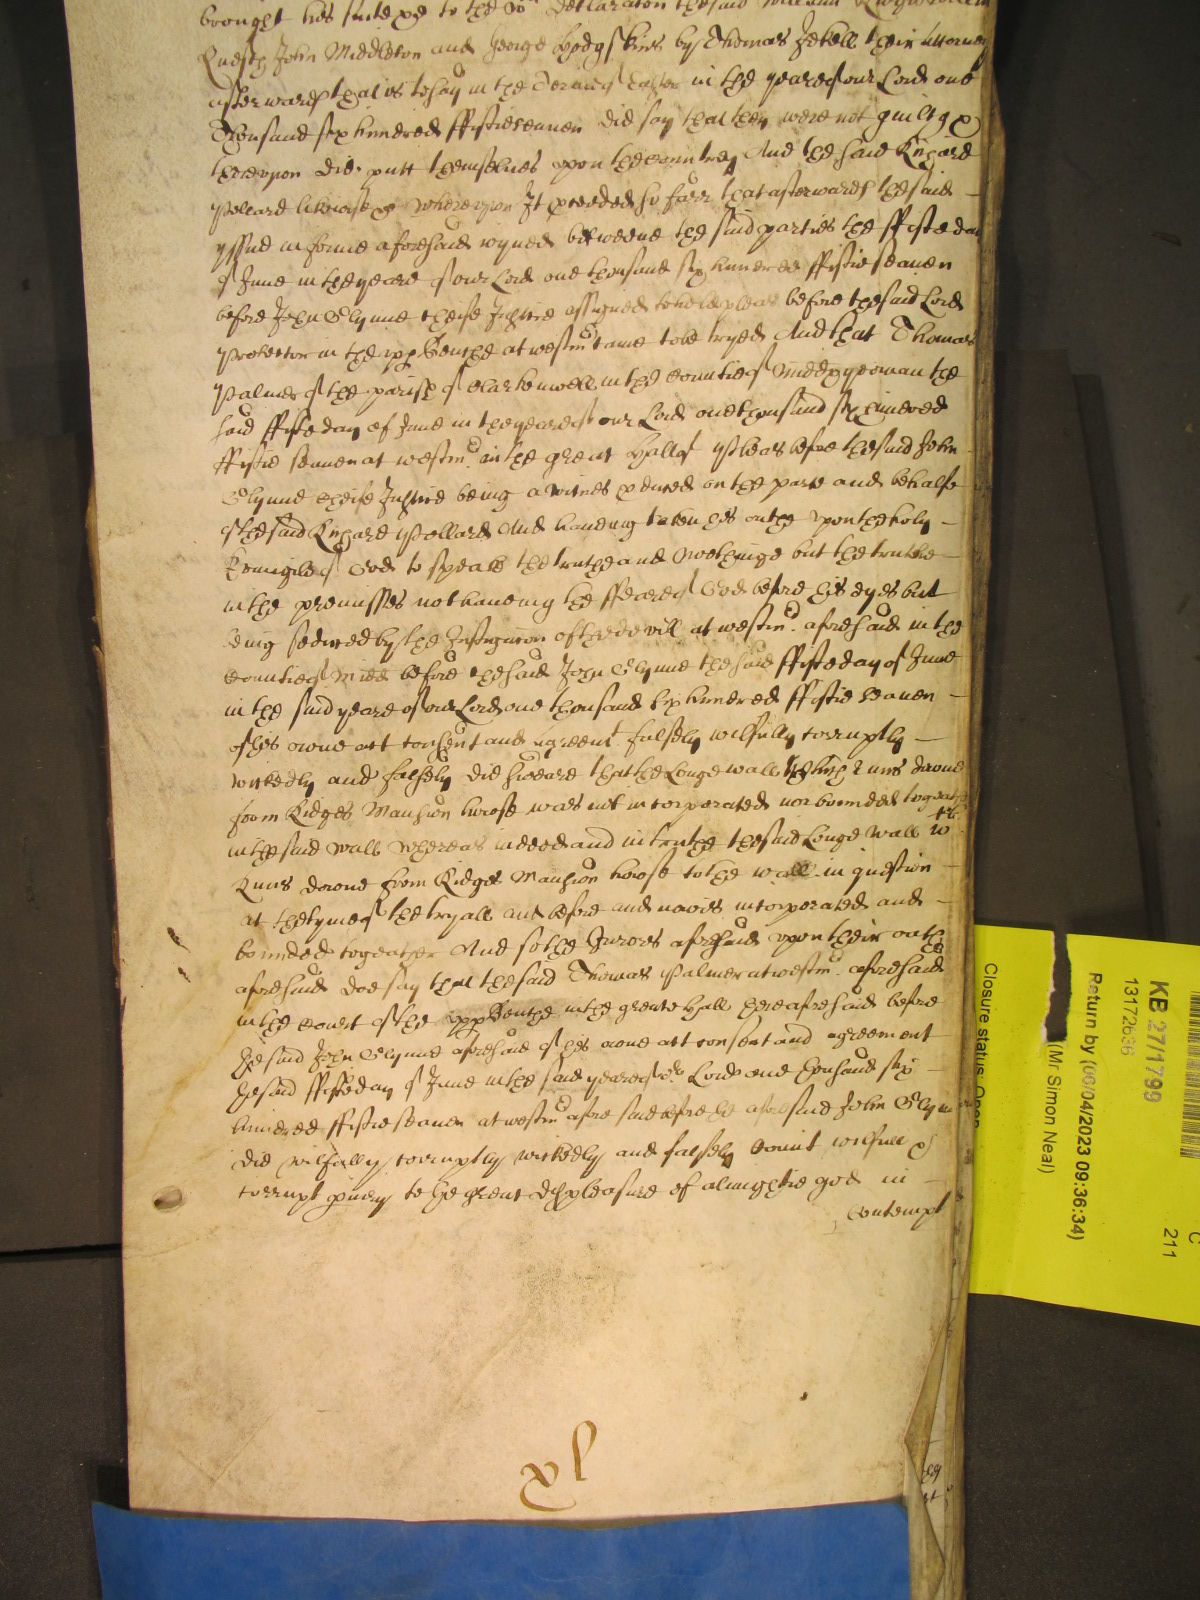 brought his suite &c to the wch declaracon the said William
Ruesty John Middleton and George Hodgskins by Thomas Jekell their Attorney
afterwards that is to say in the Terme of Easter in the yeare of our Lord one
Thousand six hundred ffiftie seaven did say that they were not guilty &
thereupon did putt themselves upon the Countrey And the said Richard
Pollard likewise &c Whereupon It proceeded so farr that afterwards the said
yssue in forme aforesaid ioyned betweene the said parties the ffifte day
of June in the yeare of our Lord one thousand six hundred ffiftie seaven
before John Glynne Cheife Justice assigned to hold pleas before the said Lord
Protector in the upp Benche at Westmr came to be tryed And that Thomas
Palmer of the parish of Clarkenwell in the Countie of Midd yeoman the
said ffifte day of June in the yeare of our Lord one thousand six hundred
ffiftie seaven at Westmr in the great Hall of Pleas before the said John
Glynne Cheife Justice being a witnes produced on the parte and behalfe
of the said Richard Pollard And haveing taken his oathe upon the holy
Evangiles of God to speake the truthe and nothinge but the truthe
in the premisses not haveing the ffeare of God before his eyes but
being seduced by the Instigacon of the devill at Westmr aforesaid in the
Countie of Midd before the said John Glynne the said ffifte day of June
in the said yeare of our Lord one thousand six hundred ffiftie seaven
of his owne act consent and agreemt falsely wilfully corruptly
wickedly and falsely did sweare that the Longe wall which runs downe
from Ridges Mansion house was not incorporated nor bounded togeather
in the said wall whereas indeed and in truthe the said Longe wall wch
Runs downe from Ridges Mansion house to the wall in question
at the tyme of the tryall and before and now is incorporated and
bounded togeather And so the Jurors aforesaid upon their oathe
aforesaid doe say that the said Thomas Palmer at Westmr aforesaid
in the Court of the upp Benche in the greate Hall there aforesaid before
the said John Glynne aforesaid of his owne act consent and agreement
the said ffifte day of June in the said yeare of or Lord one thousand six
hundred ffiftie seaven at Westmr aforesaid before the aforesaid John Glynne
did wilfully, corruptly wickedly and falsely Comit wilfull &
corrupt piury to the great displeasure of almightie god in
Contempt
KB 27/1799
13172636
Return by (06/04/2023 09:36:34)
(Mr Simon Neal)
Closure status: Open
C
211